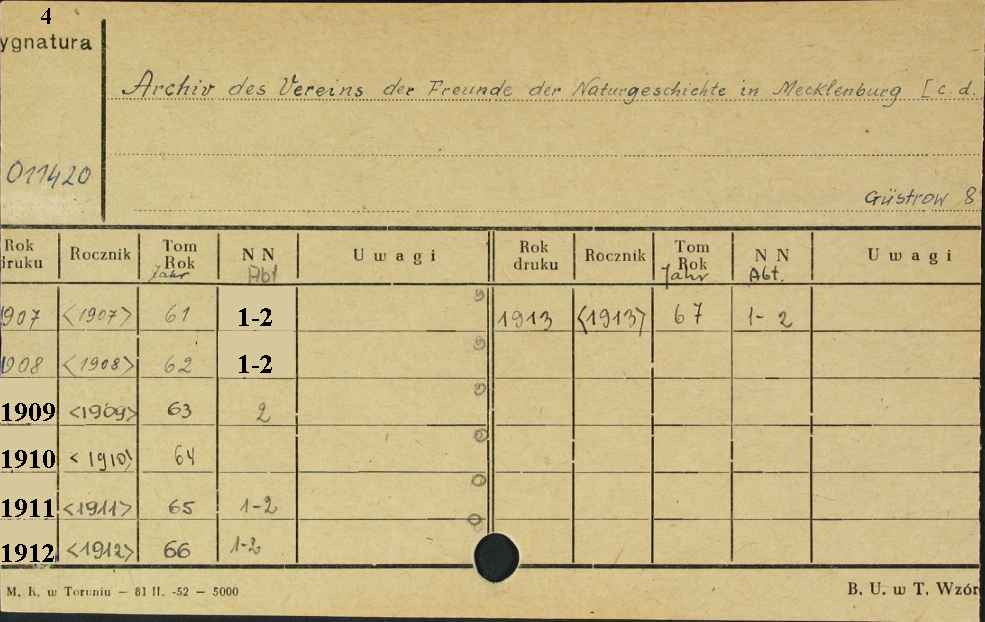 4
ygnatura
Archiv des Vereins der Freunde der Naturgeschichte in Mecklenburg [c.d.
011420
Güstrow 8
Rok druku Rocznik Tom Rok Jahr NN Abt Uwagi Rok druku Rocznik Tom Rok Jahr NN Abt. Uwagi
1907 <1907> 61 1-2 1913 <1913> 67 1-2
1908 <1908> 62 1-2
1909 <1909> 63 2
1910 <1910> 64
1911 <1911> 65 1-2
1912 <1912> 66 1-2
M. K. w Toruniu — 81 II. -52 — 5000
B. U. w T. Wzór